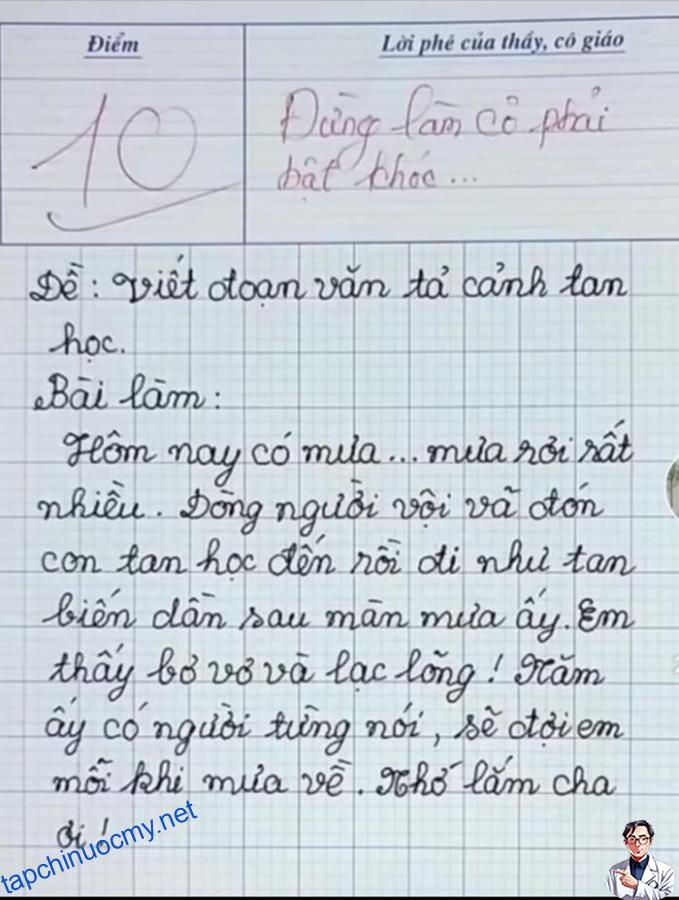 Điểm
Lời phê của thầy, cô giáo
10
Đừng làm cô phải
bật khóc...
Đề: Viết đoạn văn tả cảnh tan
học.
Bài làm:
Hôm nay có mưa... mưa rơi rất
nhiều. Dòng người vội vã đón
con tan học đến rồi đi như tan
biến dần sau màn mưa ấy. Em
thấy bơ vơ và lạc lõng! Năm
ấy có người từng nói, sẽ đợi em
mỗi khi mưa về. Nhớ lắm cha
ơi!
tapchinuocmy.net